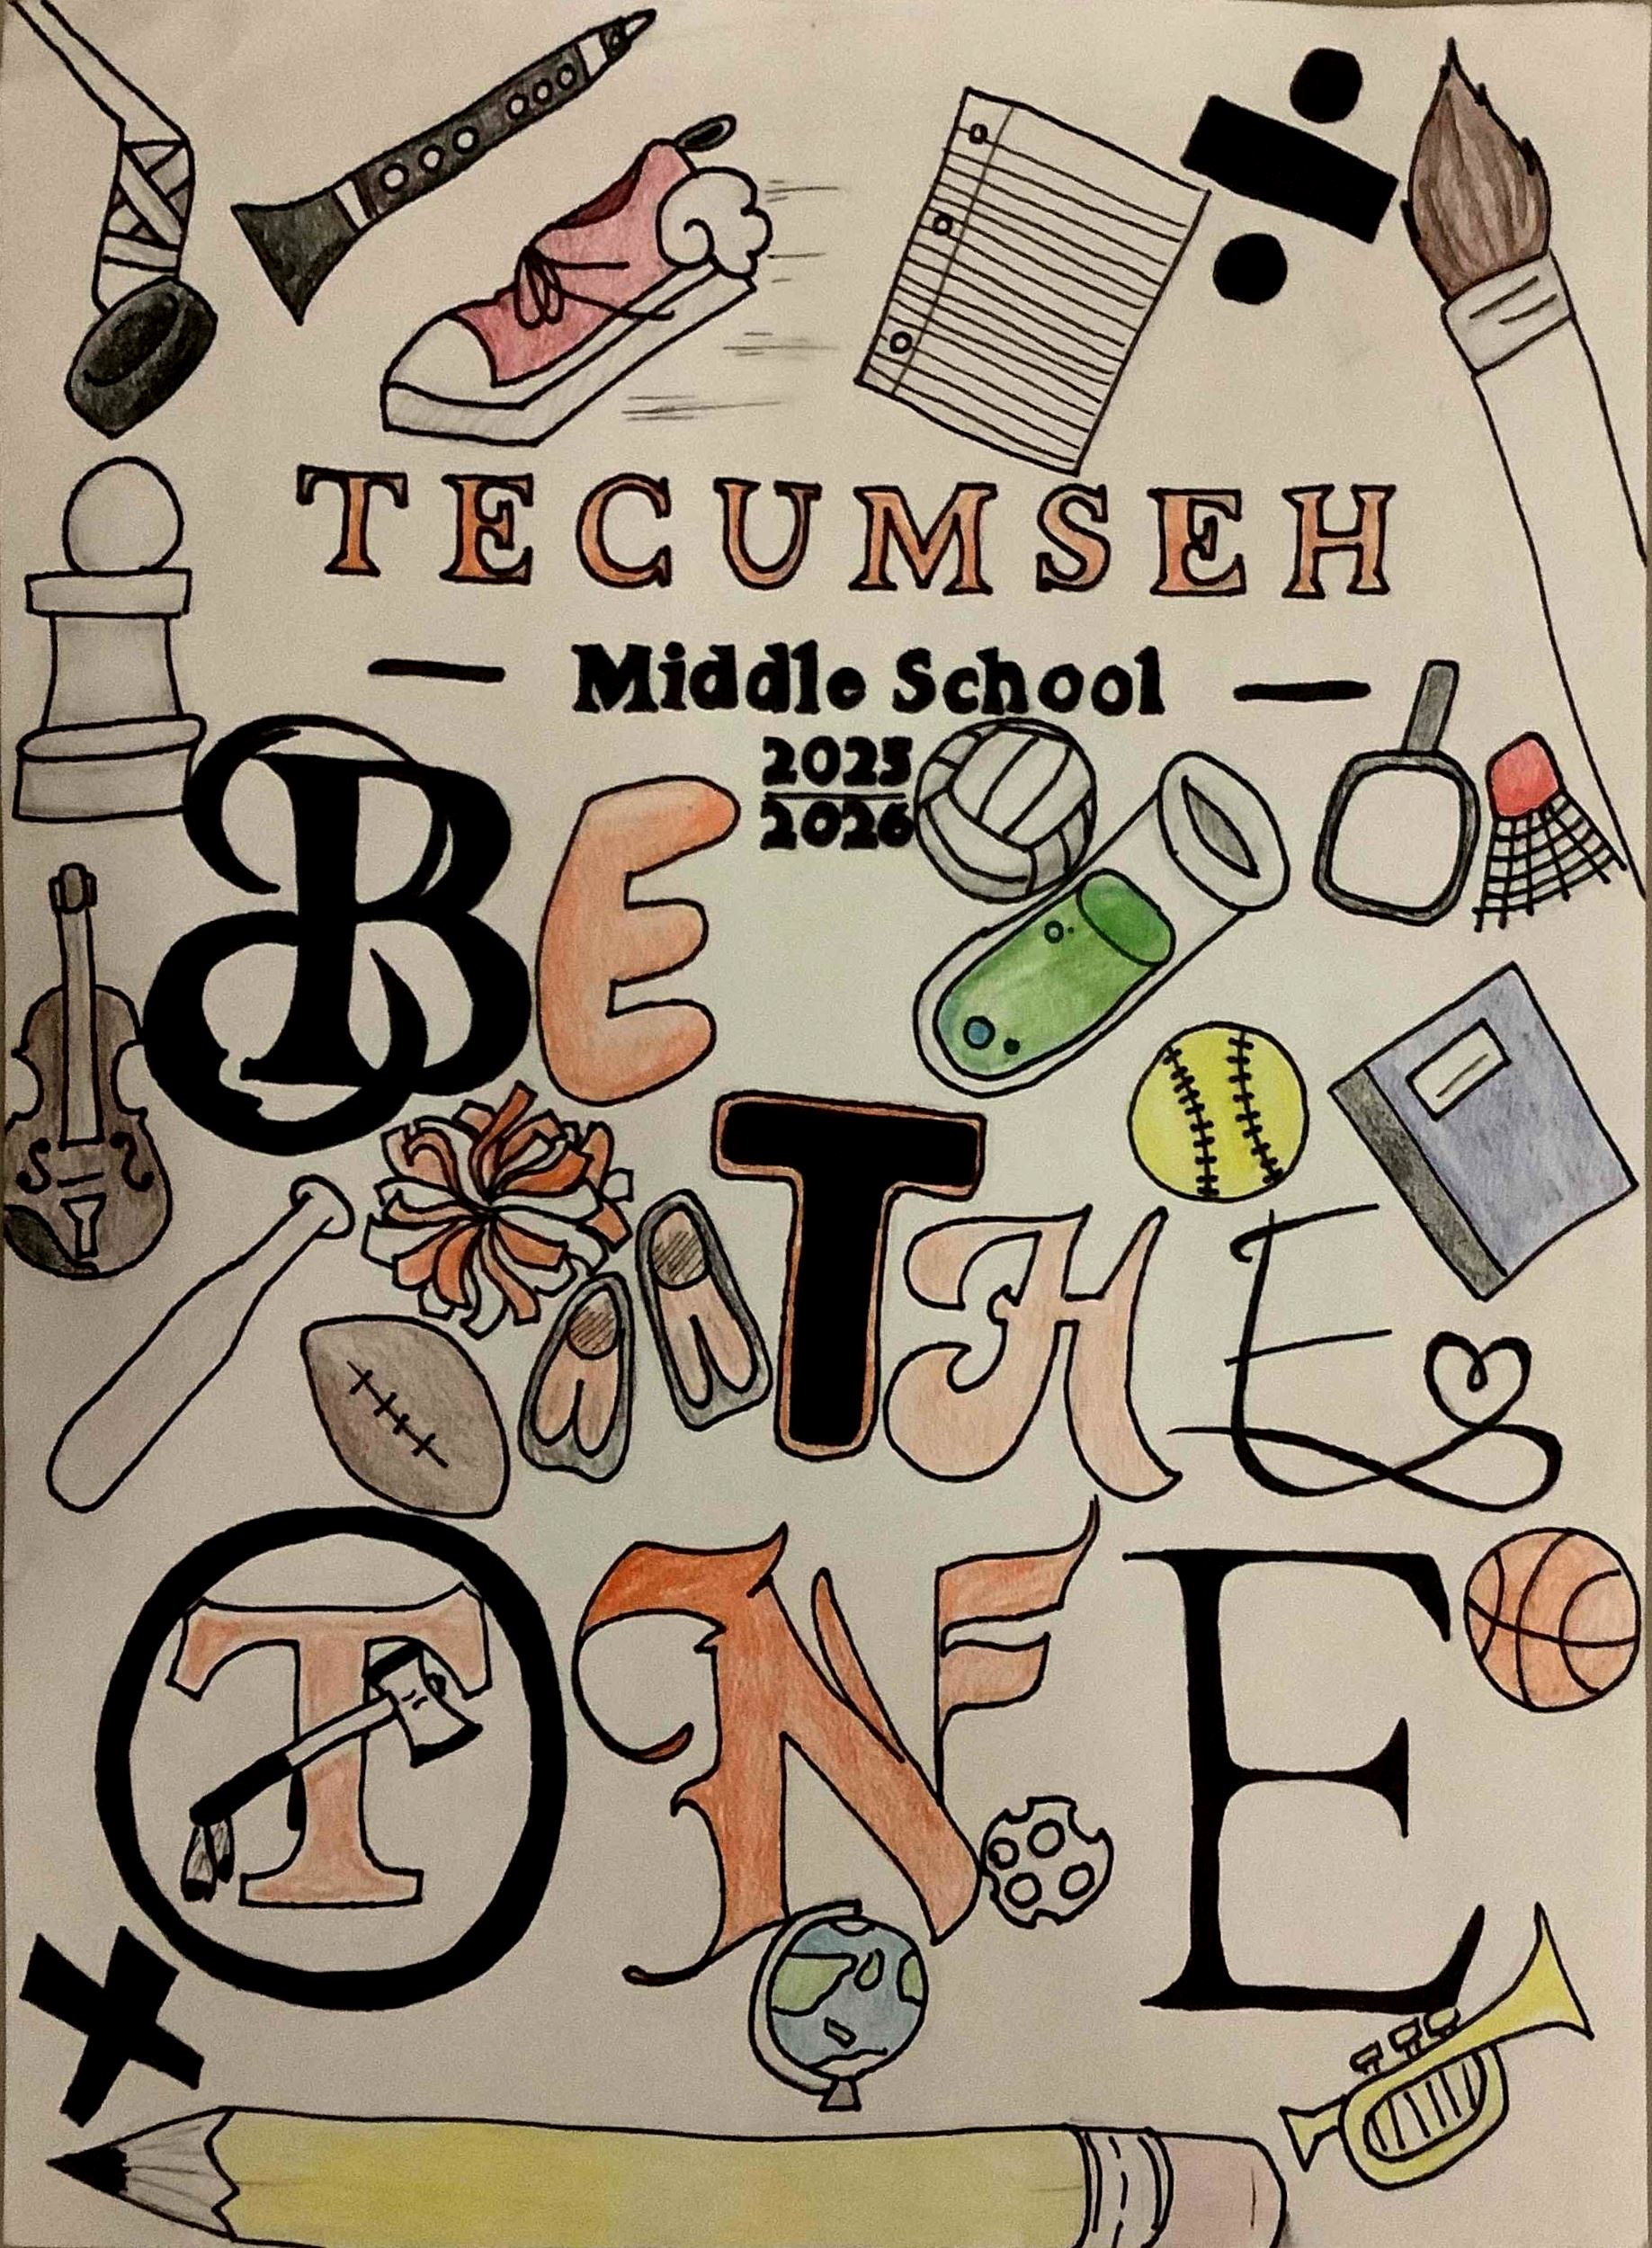 TECUMSEH
— Middle School —
2025
2026
BE
THE
ONE
T